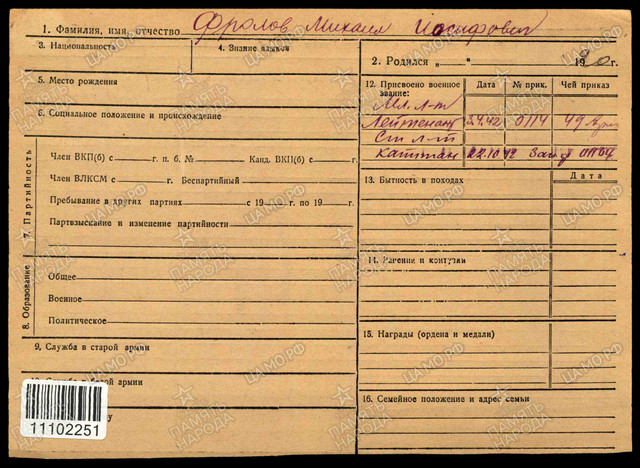 1. Фамилия, имя, отчество Фролов Михаил Иосифович
2. Родился „ “ 1920 г.
3. Национальность
4. Знание языков
5. Место рождения
6. Социальное положение и происхождение
7. Партийность
Член ВКП(б) с г. п. б. № Канд. ВКП(б) с г.
Член ВЛКСМ с г. Беспартийный
Пребывание в других партиях с 19 г. по 19 г.
Партвзыскание и изменение партийности
8. Образование
Общее
Военное
Политическое
9. Служба в старой армии
армии
11102251
12. Присвоено военное звание: Дата № прик. Чей приказ
Мл. л-т
Лейтенант 4.42 0114 49
Ст л-т
Капитан 22.10.42
13. Бытность в походах Дата
14. Ранения и контузии
15. Награды (ордена и медали)
16. Семейное положение и адрес семьи
ПАМЯТЬ НАРОДА
ЦАМО.РФ